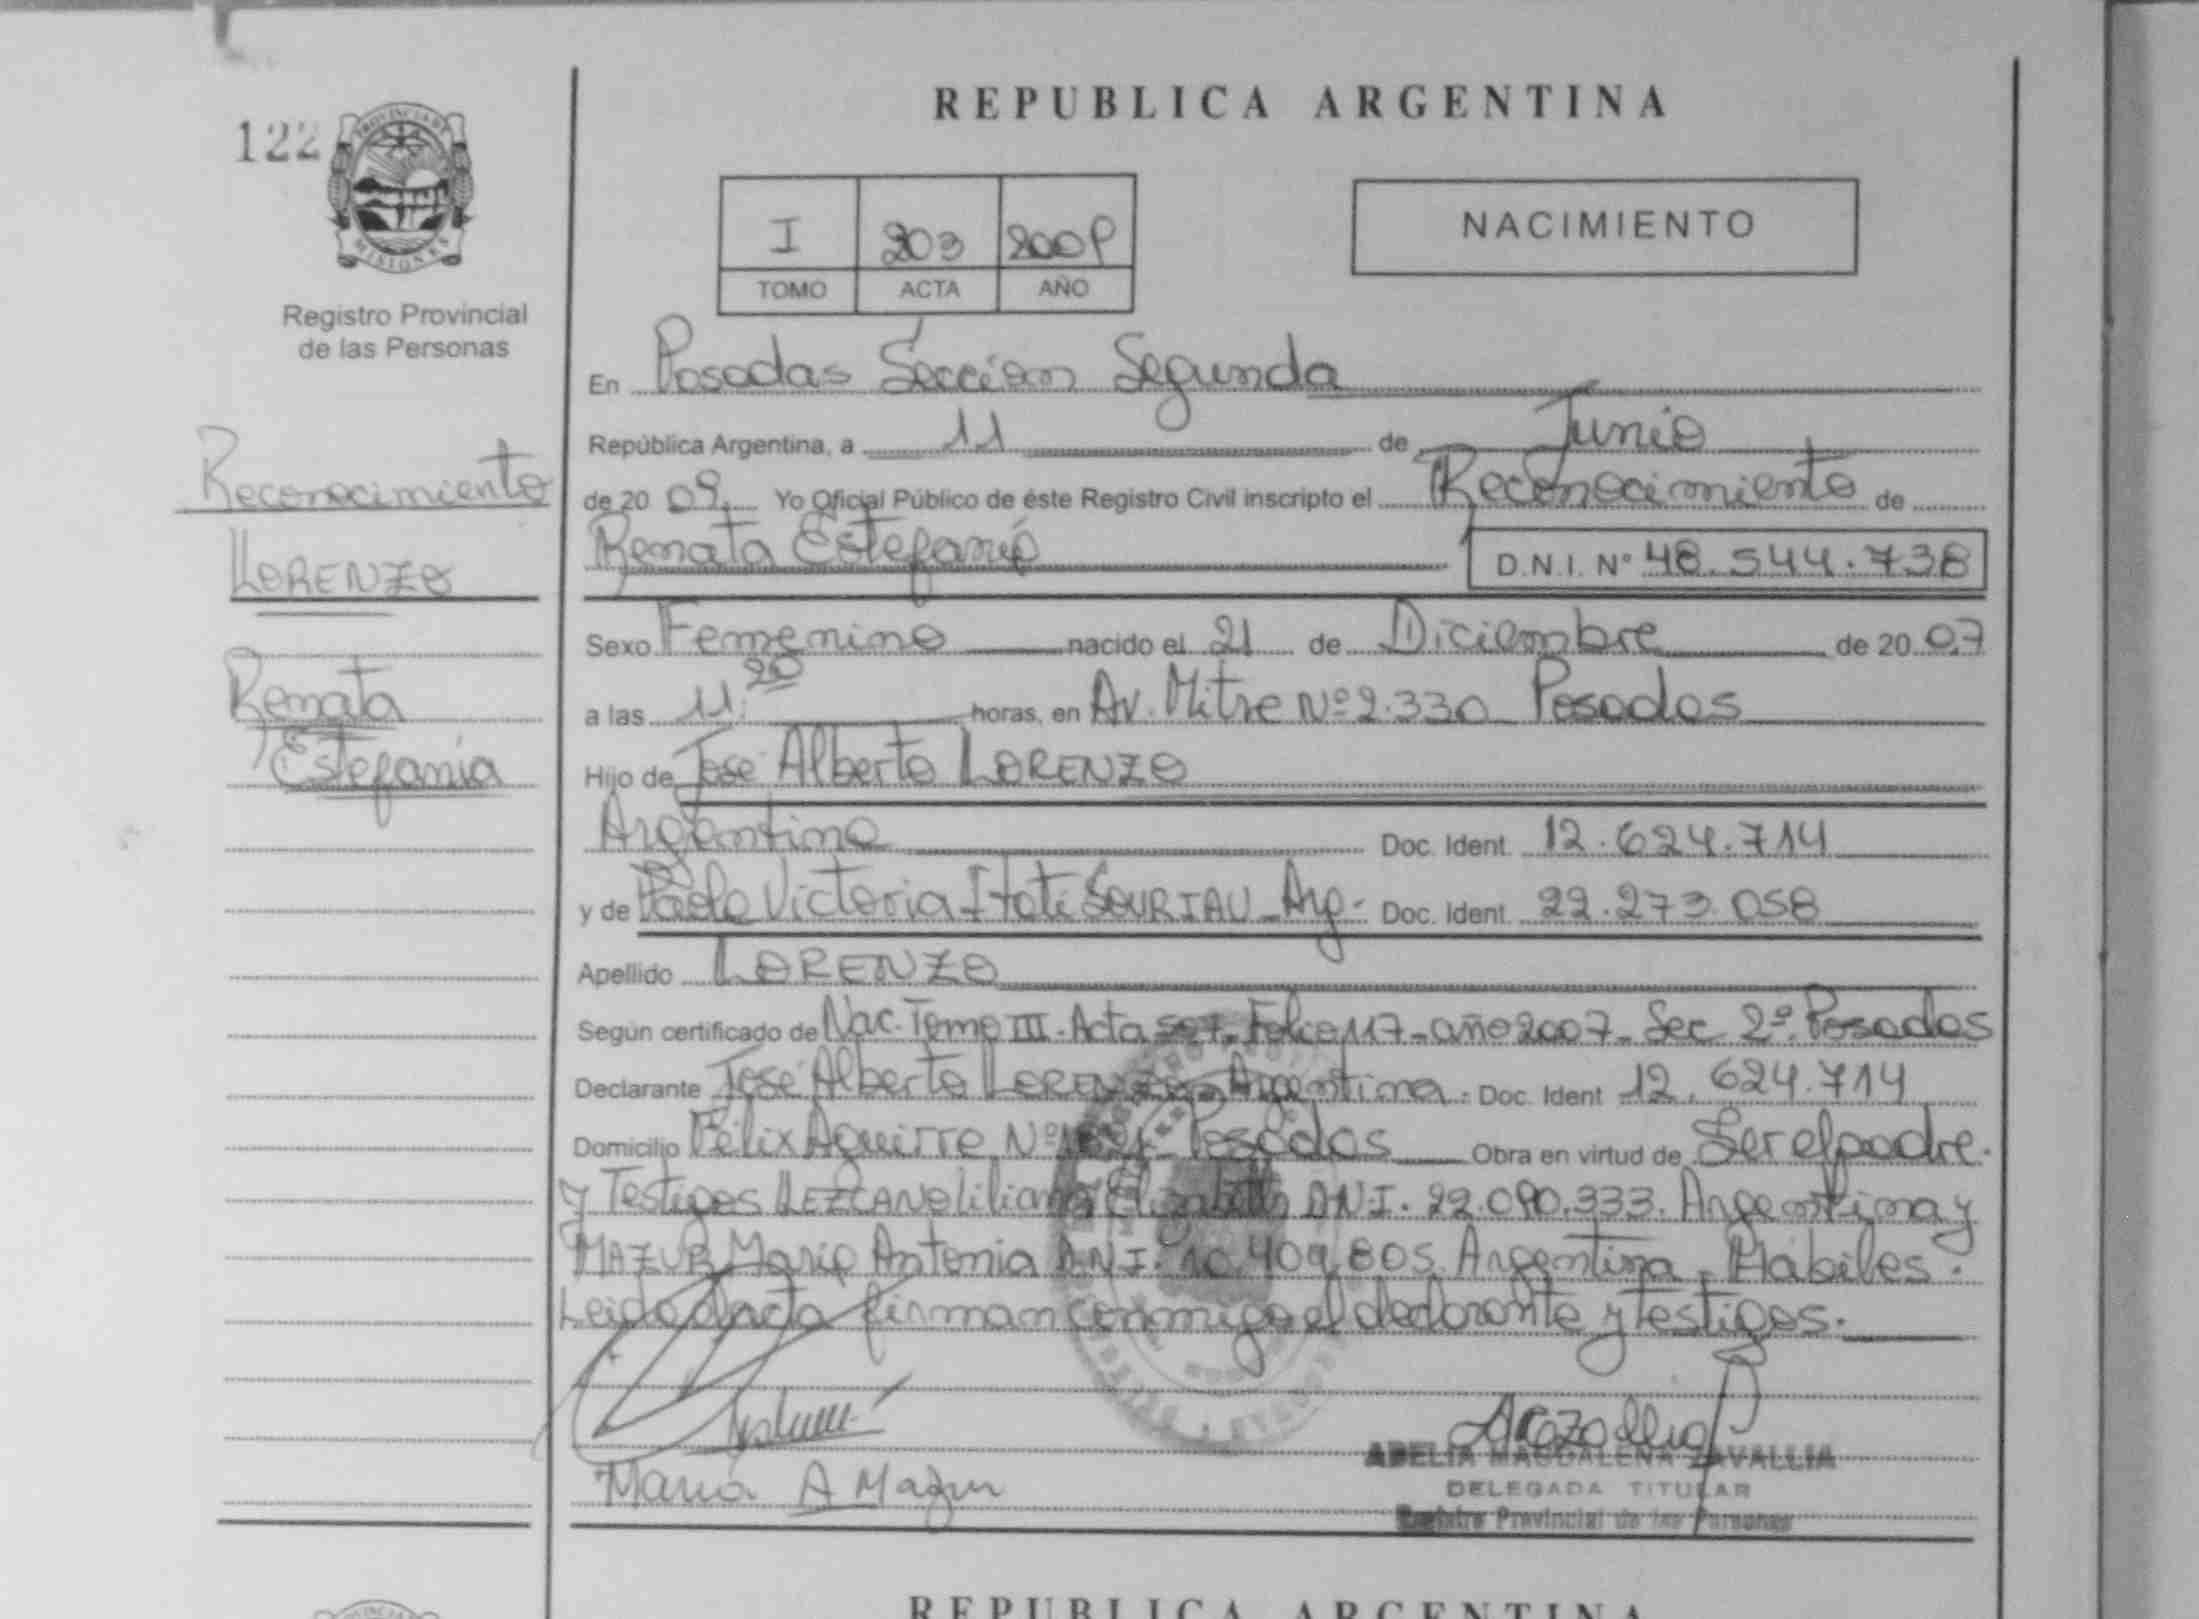 REPUBLICA ARGENTINA
122
PROVINCIA DE
MISIONES
Registro Provincial
de las Personas
I 203 2009
TOMO ACTA AÑO
NACIMIENTO
Reconocimiento
LORENZO
Renata
Estefanía
En Posadas Sección Segunda
República Argentina, a 11 de Junio
de 20 09. Yo Oficial Público de éste Registro Civil inscripto el Reconocimiento de
Renata Estefanía D.N.I. Nº 48.544.738
Sexo Femenino nacido el 21 de Diciembre de 20 07
a las 11:20 horas, en Av. Mitre Nº 2.330 Posadas
Hijo de José Alberto LORENZO
Argentino Doc. Ident. 12.624.714
y de Paola Victoria Itatí SOURIAU - Arg. Doc. Ident. 22.273.058
Apellido LORENZO
Según certificado de Nac. Tomo III - Acta - Folio 117 - año 2007 - Sec 2º Posadas
Declarante José Alberto LORENZO Argentino. Doc. Ident 12.624.714
Domicilio Félix Aguirre Nº Posadas Obra en virtud de Ser el padre.
y Testigos LEZCANO Liliana Elizabeth D.N.I. 22.090.333. Argentina y
MAZUR María Antonia D.N.I. 10.409.805. Argentina - Hábiles.
Leida el acta firman conmigo el declarante y testigos.
María A Mazur
ADELIA MAGDALENA ZAVALLIA
DELEGADA TITULAR
Registro Provincial de las Personas
REPUBLICA ARGENTINA